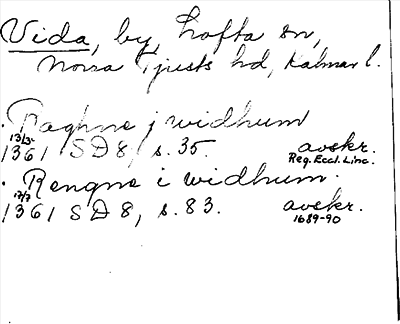 Vida, by, Lofta sn,
Norra Tjusts hd, Kalmar l.
. Raghne j widhum
13/3
1361 SD 8, s. 35. avskr.
Reg. Eccl. Linc.
. Rengne i widhum.
17/7
1361 SD 8, s. 83. avskr.
1689-90